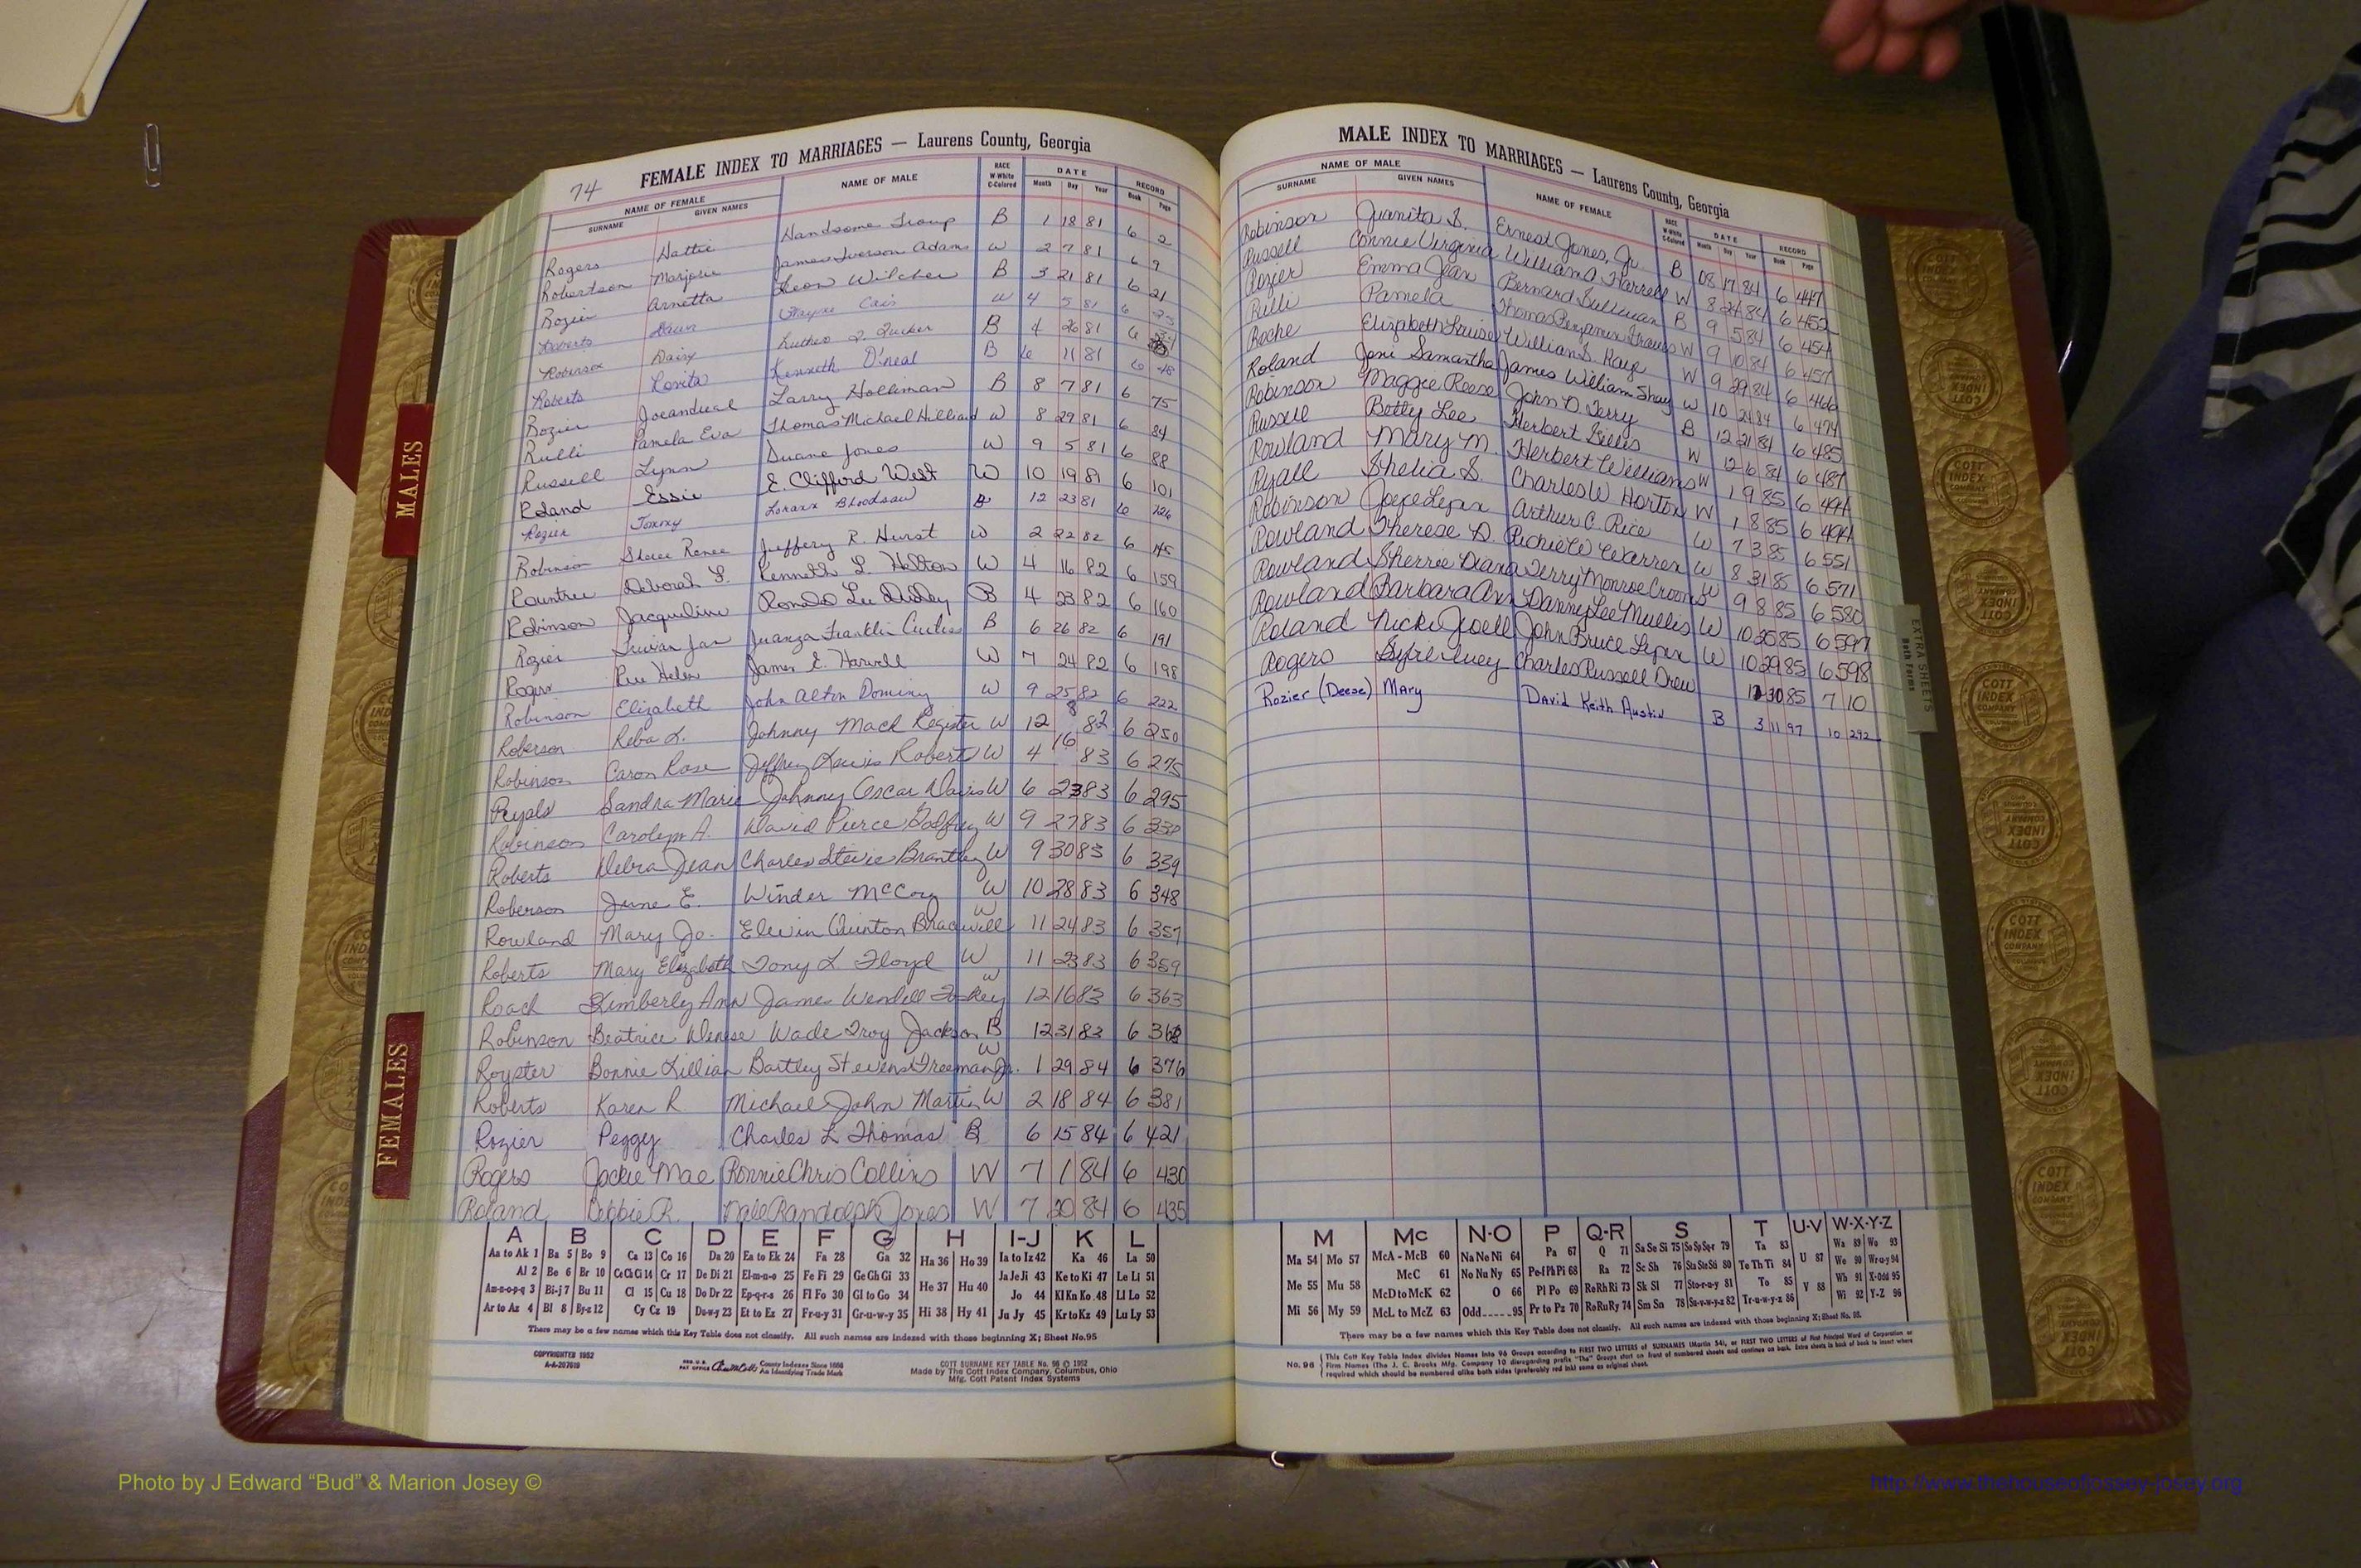 74
FEMALE INDEX TO MARRIAGES — Laurens County, Georgia
NAME OF FEMALE NAME OF MALE RACE W-White C-Colored DATE RECORD
SURNAME GIVEN NAMES Month Day Year Book Page
Rogers Hattie Handsome Troup B 1 18 81 6 2
Robertson Marjorie James Iverson Adams W 2 7 81 6 9
Rozier Arnetta Leon Wilcher B 3 21 81 6 21
Roberts Dawn Wayne W 4 5 81 6
Robinson Daisy Luther J. Tucker B 4 26 81 6
Roberts Lonita Kenneth O'neal B 6 11 81 6 48
Rozier Joeandueal Larry Holliman B 8 7 81 6 75
Rulli Pamela Eva Thomas Michael Hilliard W 8 29 81 6 84
Russell Lynn Duane Jones W 9 5 81 6 88
Roland Essie E. Clifford West W 10 19 81 6 101
Rozier Tommy Bloodsaw B 12 23 81 6 126
Robinson Renee Jeffery R. Hurst W 2 22 82 6 145
Rountree Deborah L. Kenneth L. Hilton W 4 16 82 6 159
Robinson Jacqueline Ronald Lee B 4 23 82 6 160
Rozier Jan Juanza Franklin Curtis B 6 26 82 6 191
Rogers Helen James E. Harvell W 7 24 82 6 198
Robinson Elizabeth John Alton Dominy W 9 25 82 6 222
Roberson Reba L. Johnny Mack Register W 12 8 82 6 250
Robinson Caron Rose Jeffrey Lewis Robert W 4 16 83 6 275
Ryals Sandra Marie Johnny Oscar Davis W 6 23 83 6 295
Robinson Carolyn A. David Pierce Godfrey W 9 27 83 6
Roberts Debra Jean Charles Stevie Brantley W 9 30 83 6 339
Roberson June E. Winder McCoy W 10 28 83 6 348
Rowland Mary Jo. Elevin Quinton Bracewell W 11 24 83 6 357
Roberts Mary Elizabeth Tony L Floyd W 11 23 83 6 359
Roach Kimberly Ann James Wendell Foskey W 12 16 83 6 363
Robinson Beatrice Denise Wade Troy Jackson B 12 31 83 6 368
Royster Bonnie Lillian Bartley Stevens Freeman Jr. W 1 29 84 6 376
Roberts Karen R. Michael John Martin W 2 18 84 6 381
Rozier Peggy Charles L Thomas B 6 15 84 6 421
Rogers Jackie Mae Ronnie Chris Collins W 7 1 84 6 430
Roland Debbie R. Dale Randolph Jones W 7 20 84 6 435
A B C D E F G H I-J K L
Aa to Ak 1 Ba 5 Bo 9 Ca 13 Co 16 Da 20 Ea to Ek 24 Fa 28 Ga 32 Ha 36 Ho 39 Ia to Iz 42 Ka 46 La 50
Al 2 Be 6 Br 10 Ce Ch Ci 14 Cr 17 De Di 21 El-m-n-o 25 Fe Fi 29 Ge Gh Gi 33 He 37 Hu 40 Ja Je Ji 43 Ke to Ki 47 Le Li 51
Am-n-o-p-q 3 Bi-j 7 Bu 11 Cl 15 Cu 18 Do Dr 22 Ep-q-r-s 26 Fl Fo 30 Gl to Go 34 Jo 44 Kl Kn Ko 48 Ll Lo 52
Ar to Az 4 Bl 8 By-z 12 Cy Cz 19 Du-w-y 23 Et to Ez 27 Fr-u-y 31 Gr-u-w-y 35 Hi 38 Hy 41 Ju Jy 45 Kr to Kz 49 Lu Ly 53
There may be a few names which this Key Table does not classify. All such names are indexed with those beginning X; Sheet No.95
COPYRIGHTED 1952
A-A-207619
REG. U.S. PAT OFFICE County Indexes Since 1888
An Identifying Trade Mark
COTT SURNAME KEY TABLE No. 96 © 1952
Made by The Cott Index Company, Columbus, Ohio
Mfg. Cott Patent Index Systems
MALE INDEX TO MARRIAGES — Laurens County, Georgia
NAME OF MALE NAME OF FEMALE RACE W-White C-Colored DATE RECORD
SURNAME GIVEN NAMES Month Day Year Book Page
Robinson Juanita S. Ernest Jones, Jr. B 08 17 84 6 447
Russell Connie Virginia William A. Harrell W 8 24 84 6 452
Rozier Emma Jean Bernard Sullivan B 9 5 84 6 454
Rulli Pamela Thomas Benjamin Graves W 9 10 84 6 457
Roche Elizabeth Louise William S. Kaye W 9 29 84 6 466
Roland Joni Samantha James William Shay W 10 24 84 6 474
Robinson Maggie Reese John D. Terry B 12 21 84 6 485
Russell Betty Lee Herbert Gillis W 12 6 84 6 487
Rowland Mary M. Herbert Williams W 1 9 85 6 494
Ryall Shelia S. Charles W Horton W 1 8 85 6 494
Robinson Joyce Arthur C. Rice W 7 3 85 6 551
Rowland Therese D. Richie W Warren W 8 31 85 6 571
Rowland Sherrie Diana Terry Monroe Croom W 9 8 85 6 580
Rowland Barbara Ann Danny Lee Mullis W 10 25 85 6 597
Roland Nicki Jewell John Bruce W 10 29 85 6 598
Rogers Charles Russell Drew 12 30 85 7 10
Rozier (Deese) Mary David Keith Austin B 3 11 97 10 292
M Mc N-O P Q-R S T U-V W-X-Y-Z
Ma 54 Mo 57 McA - McB 60 Na Ne Ni 64 Pa 67 Q 71 Sa Se Si 75 So Sp Sq-r 79 Ta 83 U 87 Wa 89 Wo 93
McC 61 No Nu Ny 65 Pe-f Ph Pi 68 Ra 72 Sc Sh 76 Sta Ste Sti 80 Te Th Ti 84 We 90 Wr-u-y 94
Me 55 Mu 58 McD to McK 62 O 66 Pl Po 69 Re Rh Ri 73 Sk Sl 77 Sto-r-u-y 81 To 85 V 88 Wh 91 X-Odd 95
Mi 56 My 59 McL to McZ 63 Odd 95 Pr to Pz 70 Ro Ru Ry 74 Sm Sn 78 Su-v-w-y-z 82 Tr-u-w-y-z 86 Wi 92 Y-Z 96
There may be a few names which this Key Table does not classify. All such names are indexed with those beginning X; Sheet No. 95.
No. 96 This Cott Key Table Index divides Names into 96 Groups according to FIRST TWO LETTERS of SURNAMES (Martin 54), or FIRST TWO LETTERS of First Principal Word of Corporation or
Firm Names (The J. C. Brooks Mfg. Company 10 disregarding prefix "The" Groups start on front of numbered sheets and continue on back. Extra sheets in back of book to insert where
required which should be numbered alike both sides (preferably red ink) same as original sheet.
MALES
FEMALES
EXTRA SHEETS
Both Forms
COTT INDEX COMPANY
Photo by J Edward “Bud” & Marion Josey ©
http://www.thehouseofjossey-josey.org